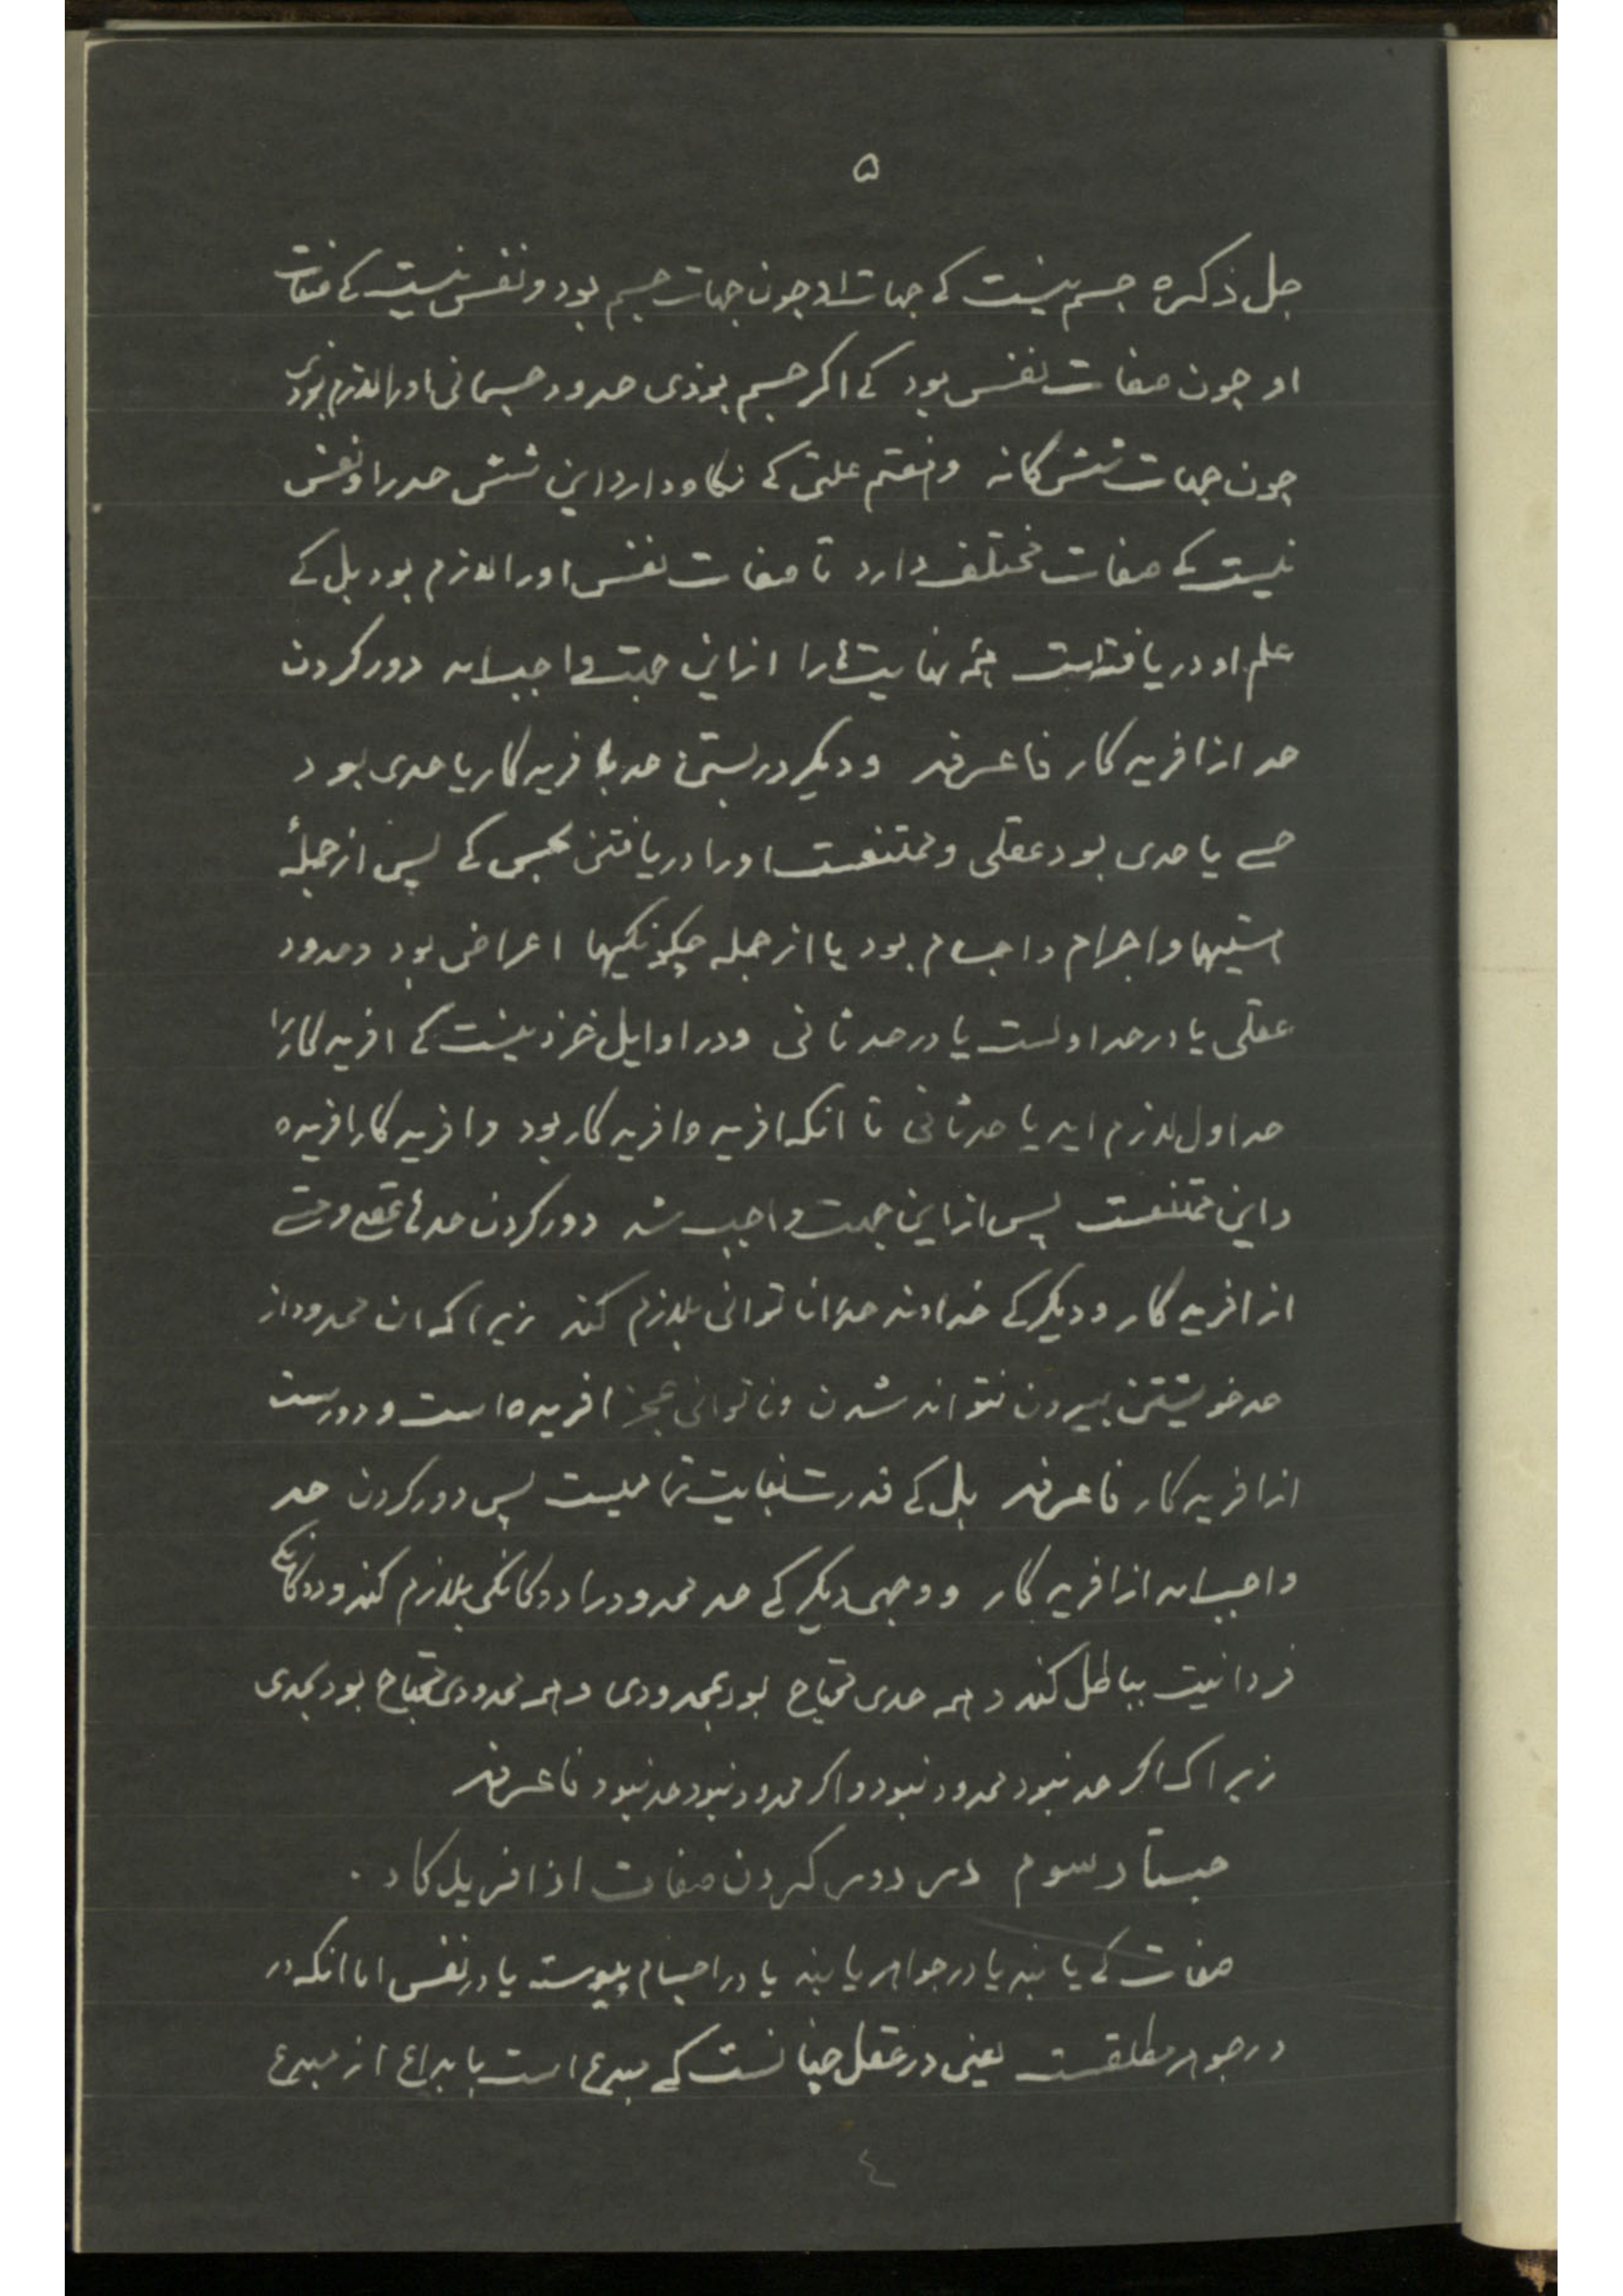 ۵
جل ذکره جسم نیست کے جهات او چون جهات جسم بود و نفس نیست کے صفات
او جون صفات نفس بود کے اکر جسم بوذی حدود جسمانی اورا لازم بودی
جون جهات شش کانه و هفتم علتی کے نکاه دارد این شش حد را و نفس
نیست کے صفات مختلف دارد تا صفات نفس اورا لازم بود بل کے
علم او دریافته است همه نهایت ها را ازاین جهت واجب امد دور کردن
حد از افریدکار فاعرفه و دیکر در بستن حد بافریدکار یا حدی بود
حسے یا حدی بود عقلی و ممتنعست اورا دریافتن بحس کے پس از جملهٔ
اجرام و اجسام بود یا از جمله چکونکیها اعراض بود و حدود
عقلی یا در حد اولست یا در حد ثانی و در اوایل خرذ نیست کے افریدکاررا
حد اول لازم اید یا حد ثانی تا انکه افریده افریدکار بود و افریدکار افریده
و این ممتنعست پس ازاین جهت واجب شد دور کردن حدهاے عقلے و حسے
از افریدکار و دیکر کے خداوند حد را ناتوانی بلازم کند زیرا که ان محدود از
حد خویشتن بیرون نتواند شدن و ناتوانی عجز افریده است و دورست
از افریدکار فاعرفه بل کے قدرت بغایت تمامیست پس دور کردن حد
واجب امد از افریدکار و وجهی دیکر کے حد محدود را دوکانکی بلازم کند و دوکانکی
فردانیت بباطل کند و همه حدی محتاج بود بمحدودی و همه محدودی محتاج بود بحدی
زیراک اکر حد نبود محدود نبود و اکر محدود نبود حد نبود فاعرفه
جستار سوم در دور کردن صفات از افریدکار .
صفات کے یابند یا در جواهر یابند یا در اجسام پیوسته یا در نفس اما انکه در
در جوهر مطلقست یعنی در عقل چنانست کے مبدع است بابداع از مبدع
٤